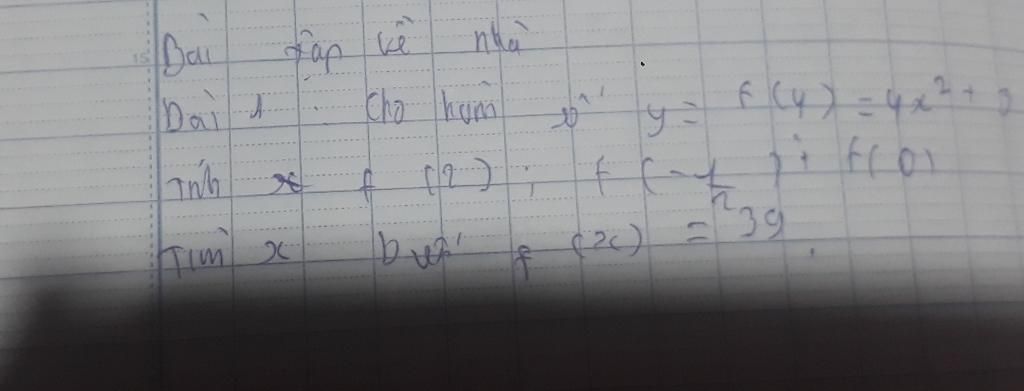 Bài tập về nhà
Bài 1 : Cho hàm số y = f(4) = 4x² + 3
Tính f (2) ; f (-1/2) ; f(0)
Tìm x biết f (x) = 39